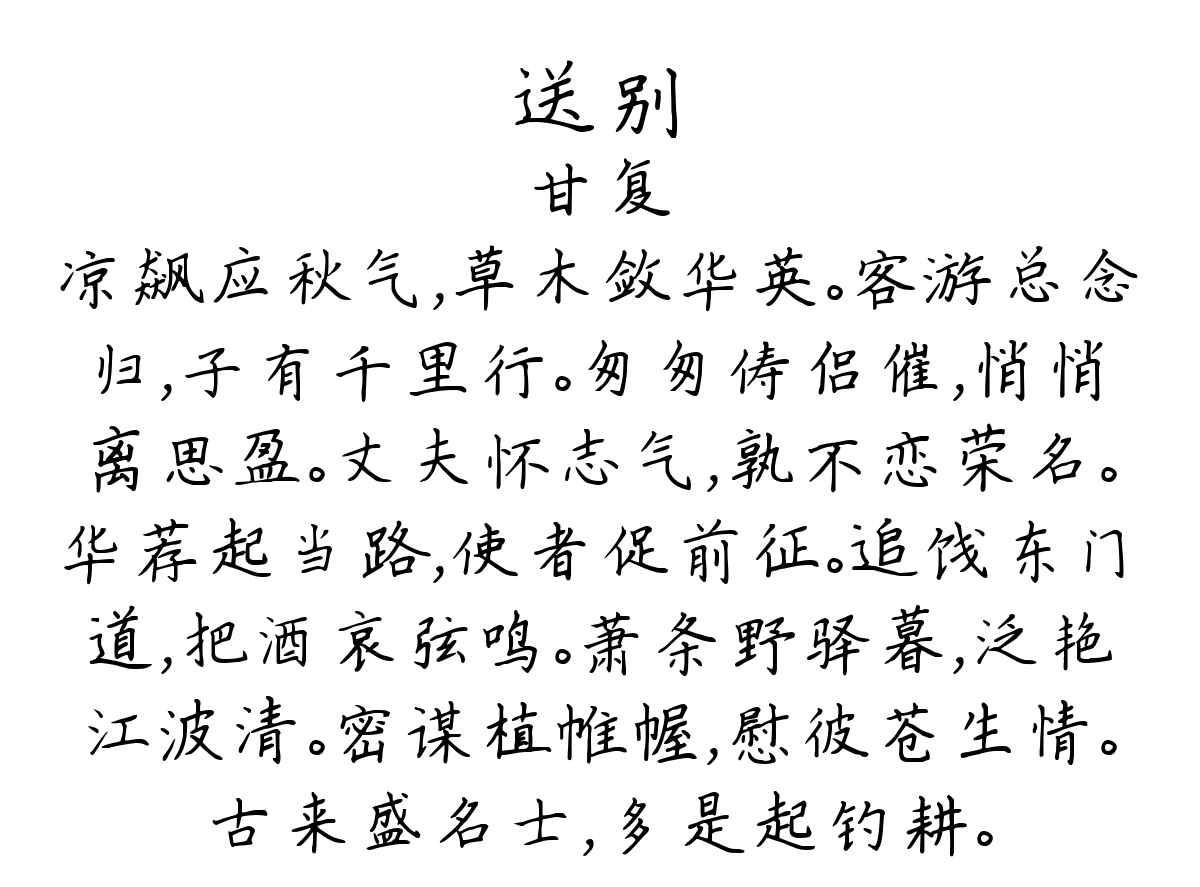 送别
甘复
凉飙应秋气,草木敛华英。客游总念
归,子有千里行。匆匆俦侣催,悄悄
离思盈。丈夫怀志气,孰不恋荣名。
华荐起当路,使者促前征。追饯东门
道,把酒哀弦鸣。萧条野驿暮,泛艳
江波清。密谋植帷幄,慰彼苍生情。
古来盛名士,多是起钓耕。